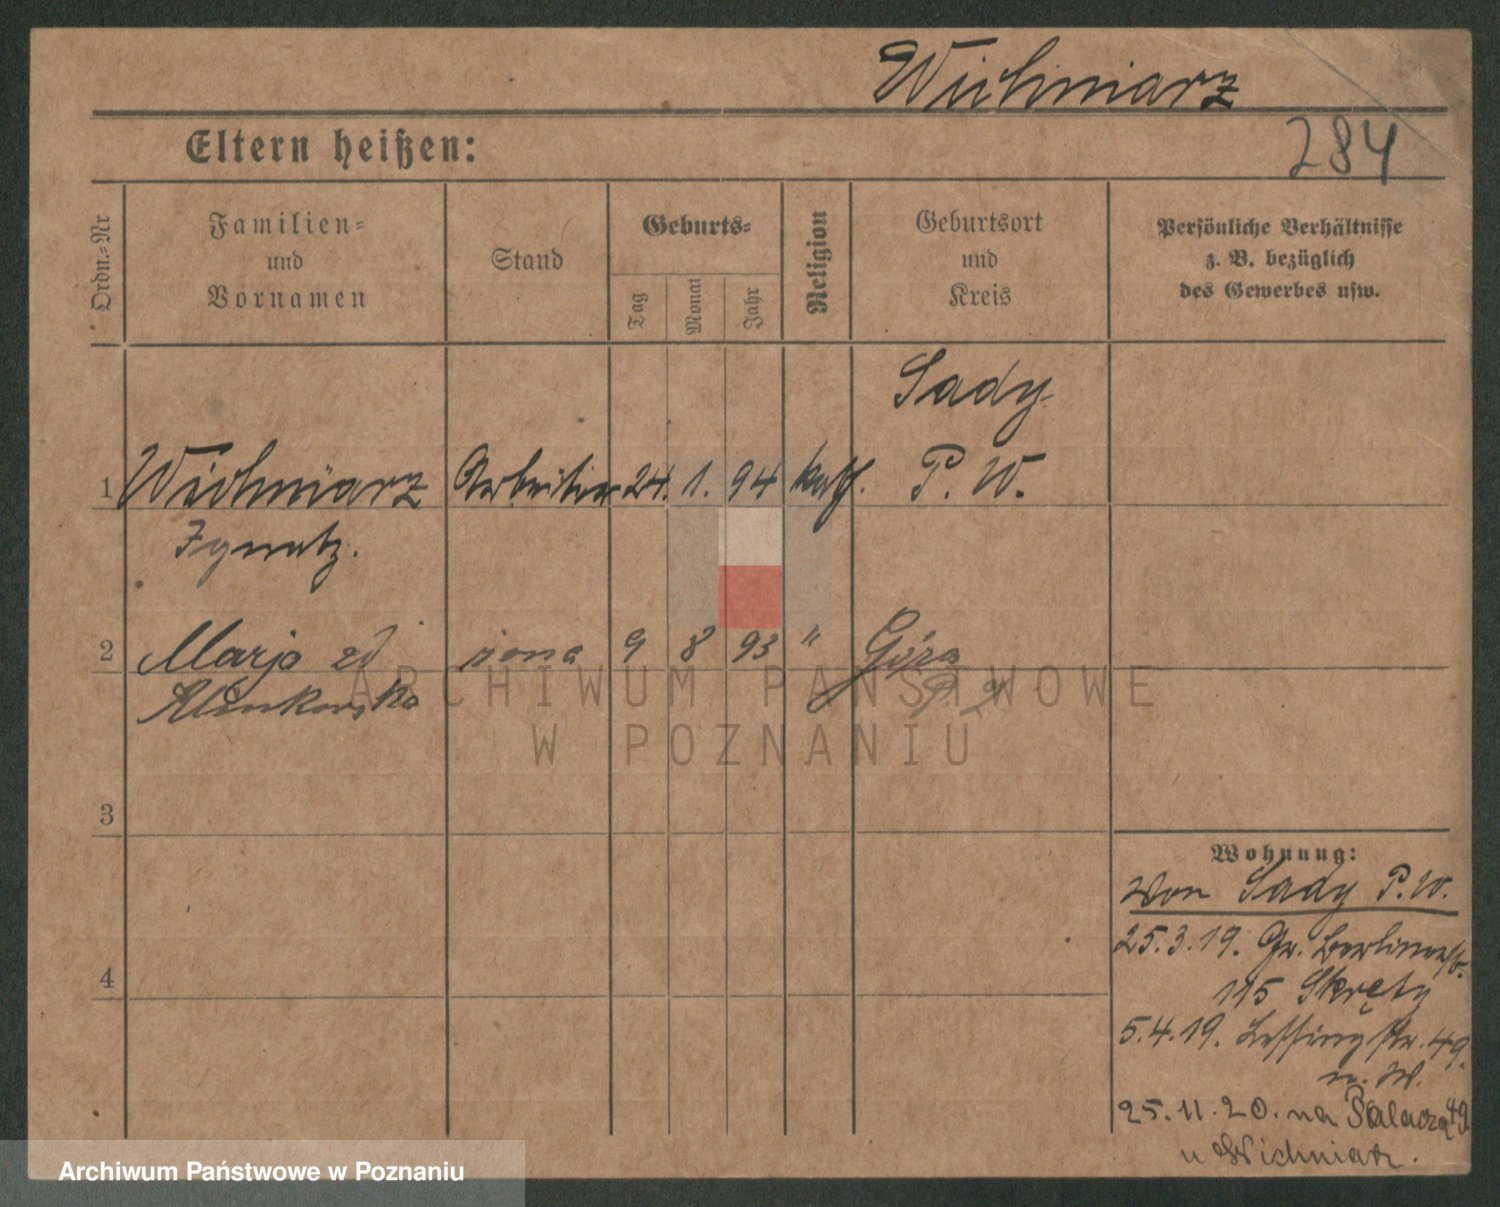 Wichniarz
284
Eltern heißen:
Ordn.=Nr
Familien=
und
Vornamen
Stand
Geburts=
Tag
Monat
Jahr
Religion
Geburtsort
und
Kreis
Persönliche Verhältnisse
z. B. bezüglich
des Gewerbes usw.
Sady
1 Wichniarz Arbeiter 24. 1. 94 kath. P. W.
Ignatz.
2 Marja zd żona 9 8 93 " Góra
ARCHIWUM PAŃSTWOWE
W POZNANIU
3
Wohnung:
von Sady P. W.
25.3.19. Gr. Berlinerstr.
115 Skręty
4
5.4.19. Lessingstr. 49.
25.11.20. na Palacza 49
u Wichniarz.
Archiwum Państwowe w Poznaniu